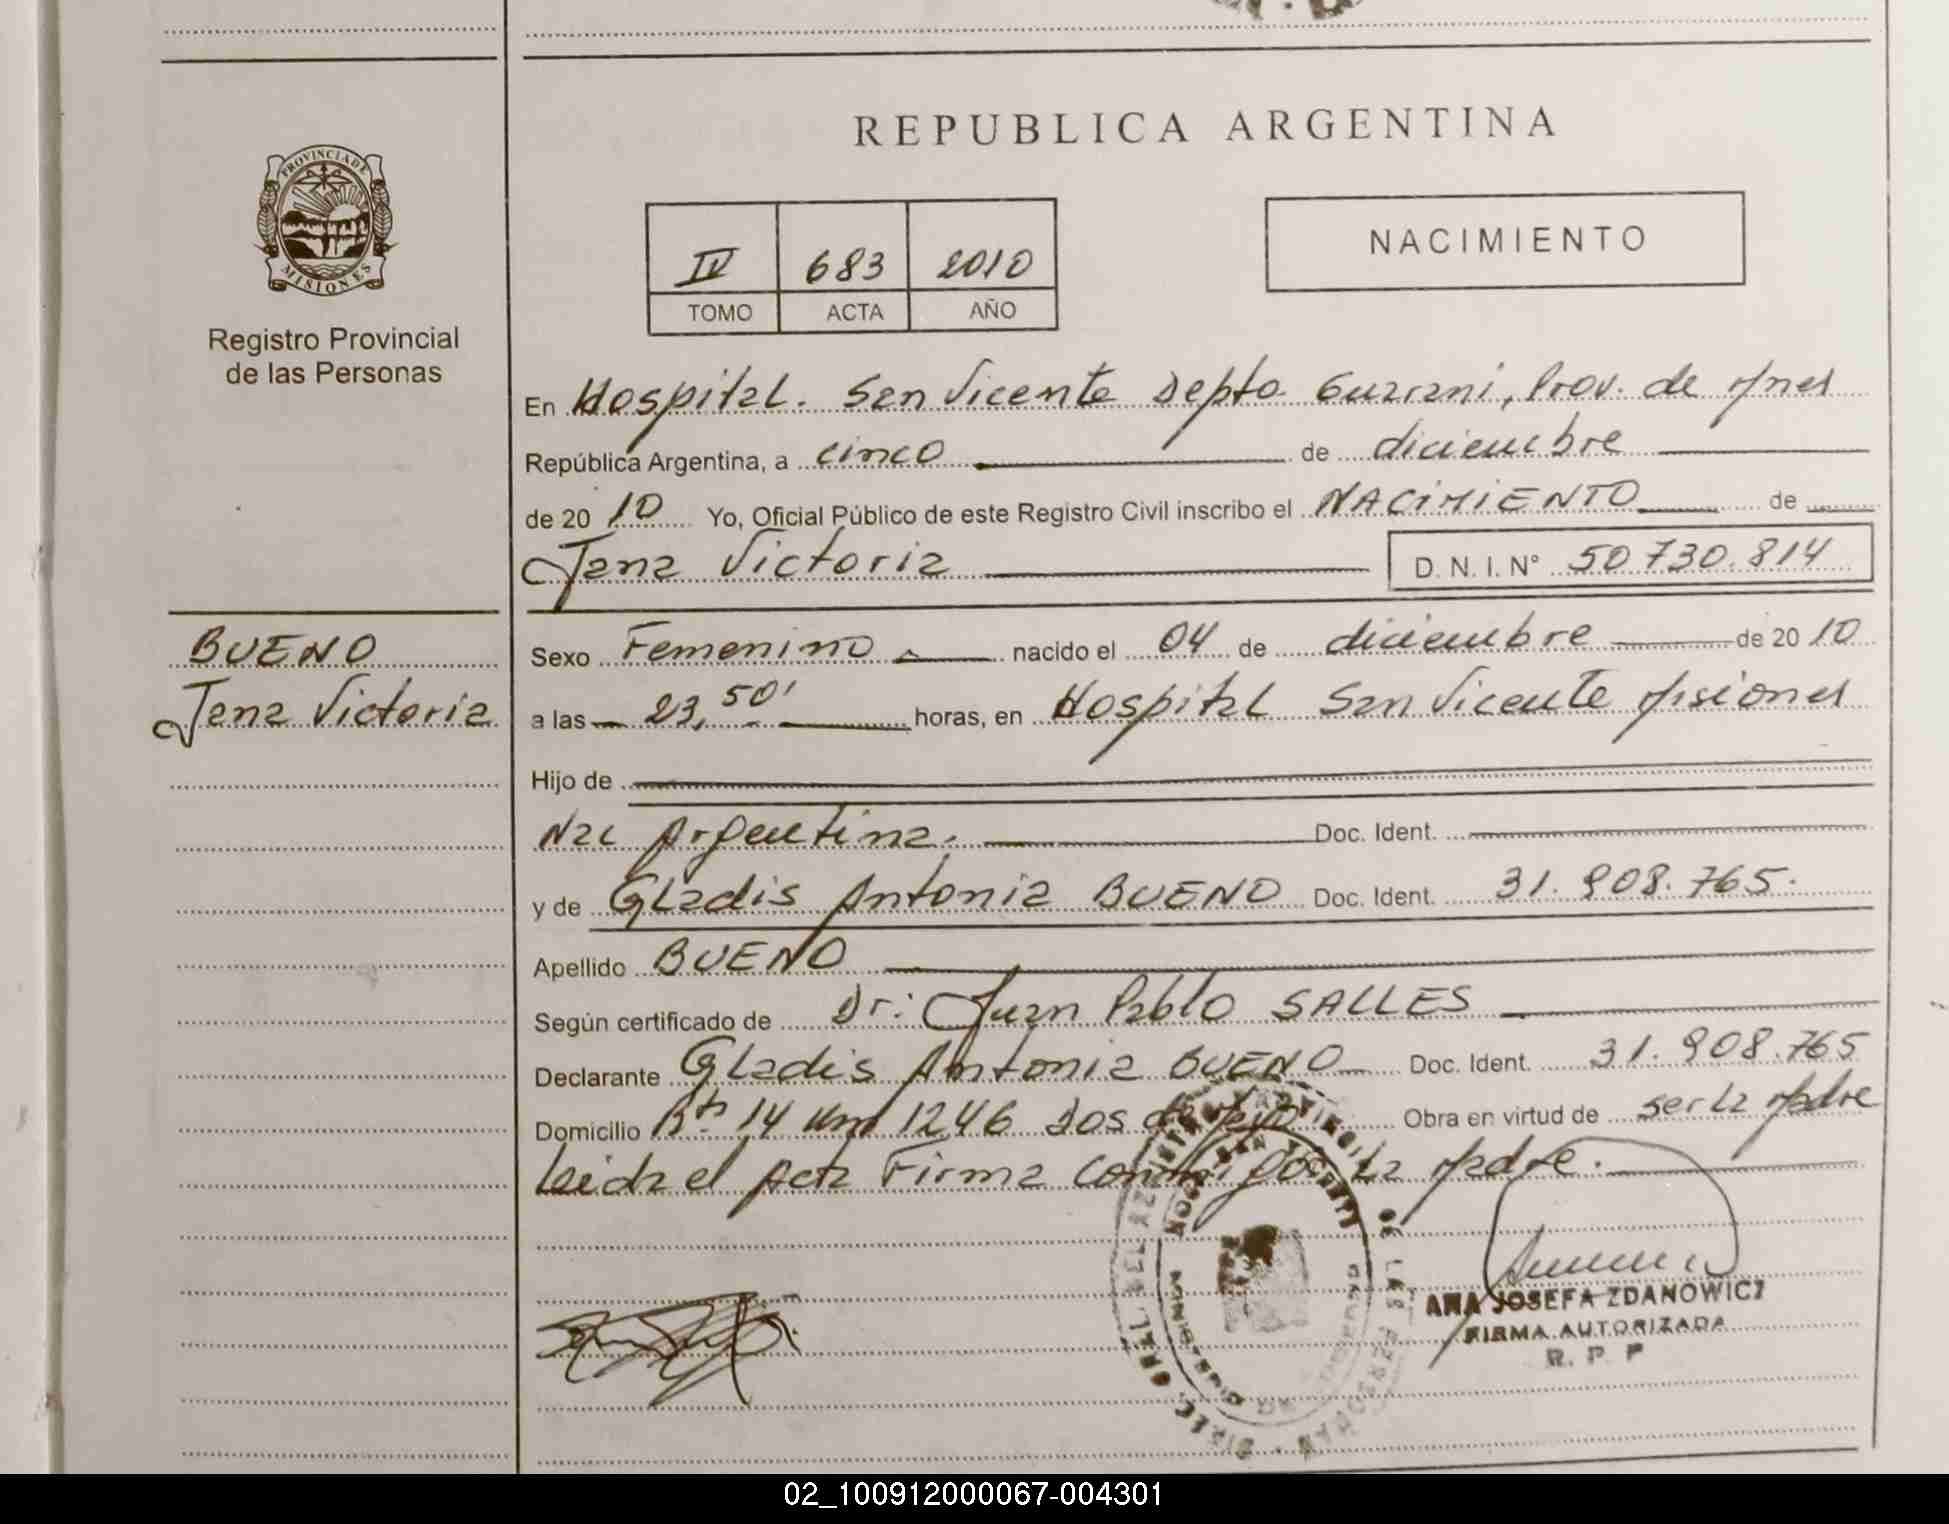 REPUBLICA ARGENTINA
PROVINCIA DE
MISIONES
Registro Provincial
de las Personas
IV 683 2010
TOMO ACTA AÑO
NACIMIENTO
En Hospital. San Vicente Depto Guarani, Prov. de Mnes
República Argentina, a cinco de diciembre
de 2010 Yo, Oficial Público de este Registro Civil inscribo el NACIMIENTO de
Jana Victoria D. N. I. N° 50.730.814
BUENO
Jana Victoria
Sexo Femenino nacido el 04 de diciembre de 2010
a las 23,50' horas, en Hospital San Vicente Misiones
Hijo de
Nac Argentina. Doc. Ident.
y de Gladis Antonia BUENO Doc. Ident. 31.908.765.
Apellido BUENO
Según certificado de Dr: Juan Pablo SALLES
Declarante Gladis Antonia BUENO Doc. Ident. 31.908.765
Domicilio Rta 14 Km 1246 Dos de Mayo Obra en virtud de ser la Madre
Leida el Acta Firma Conmigo la Madre.
ANA JOSEFA ZDANOWICZ
FIRMA AUTORIZADA
R. P. P
02_100912000067-004301